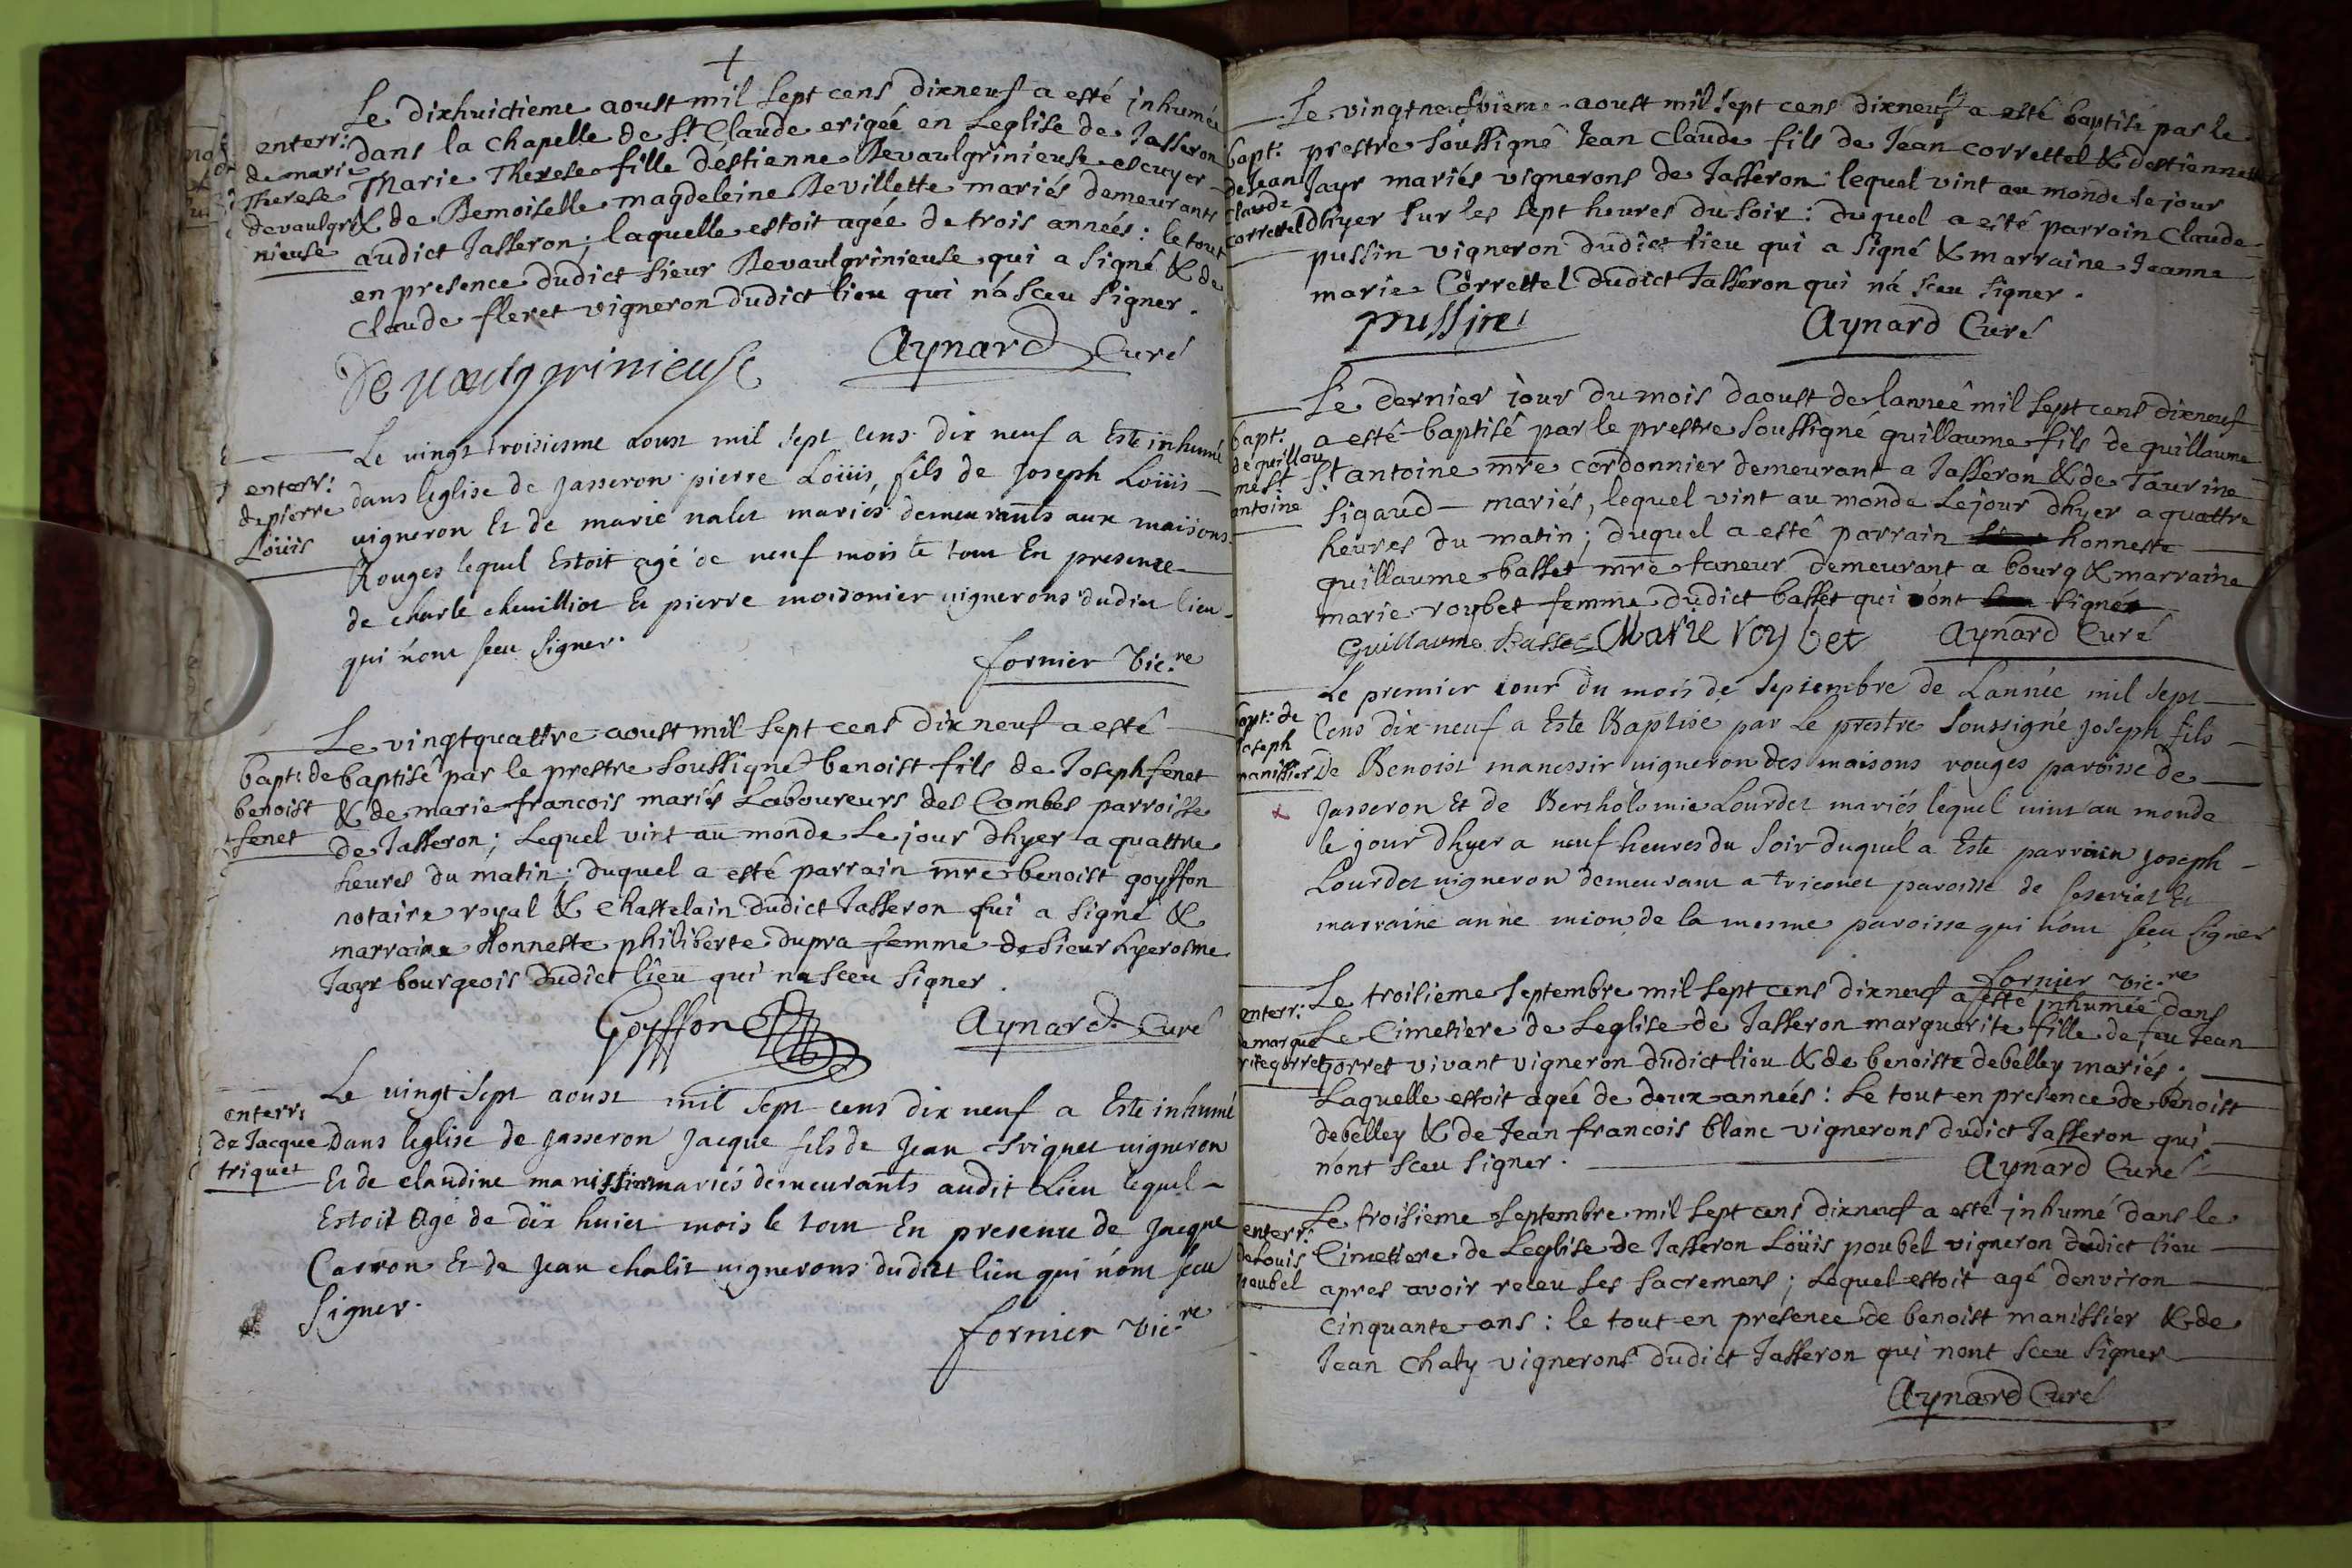 Le dixhuictieme aoust mil sept cens dixneuf a esté inhumée
enterr:
de marie
Therese
devaulgri
nieuse
dans la chapelle de St Claude erigée en Leglise de Jasseron
Marie Therese fille destienne Devaulgrinieuse escuyer
& de Demoiselle magdeleine Devillette mariés demeurants
audict Jasseron; laquelle estoit agée de trois années: le tout
en presence dudict sieur Devaulgrinieuse qui a signé & de
Claude fleret vigneron dudict lieu qui n'a sceu signer.
De Vaulgrinieuse Aynard Curé
Le vingt troisiesme aoust mil sept cens dix neuf a Este inhumé
enterr:
de pierre
Loüis
dans leglise de Jasseron pierre Loüis, fils de Joseph Loüis
vigneron Et de marie nalet mariés demeurants aux maisons
Rouges lequel Estoit agé de neuf mois le tout En presence
de charle chevilliot Et pierre moisonier vignerons dudict lieu
qui n'ont sceu signer.
fornier vic.re
Le vingtquattre aoust mil sept cens dixneuf a esté
bapt: de
benoist
fenet
baptisé par le prestre soussigné benoist fils de Joseph fenet
& de marie francois mariés Laboureurs des Combes parroisse
de Jasseron; Lequel vint au monde Le jour dhyer a quattre
heures du matin; duquel a esté parrain mre benoist goyffon
notaire royal & Chastelain dudict Jasseron qui a signé &
marraine Honneste philiberte dupra femme de sieur hyerosme
Jayr bourgeois dudict lieu qui na sceu signer.
Goyffon Aynard Curé
Le vingt sept aoust mil sept cens dix neuf a Este inhumé
enterr:
de Jacque
triquet
Dans leglise de Jasseron Jacque fils de Jean triquet vigneron
Et de claudine manissier mariés demeurants audit Lieu lequel
Estoit Agé de dix huict mois le tout En presence de Jacque
Carron Et de Jean chalit vignerons dudict lieu qui n'ont sceu
signer.
fornier vic.re
Le vingtneufvieme aoust mil sept cens dixneuf a esté baptisé par le
bapt:
de Jean
claude
correttel
prestre soussigné Jean Claude fils de Jean correttel & destiennette
Jayr mariés vignerons de Jasseron: lequel vint au monde le jour
dhyer sur les sept heures du soir: duquel a esté parrain Claude
pussin vigneron dudict lieu qui a signé & marraine Jeanne
marie Correttel dudict Jasseron qui n'a sceu signer.
pussin Aynard Curé
Le dernier jour du mois daoust de lannee mil sept cens dixneuf
bapt:
de guillau
me St
antoine
a esté baptisé par le prestre soussigné guillaume fils de guillaume
St antoine mre cordonnier demeurant a Jasseron & de Taurine
Sigaud mariés, lequel vint au monde Le jour dhyer a quattre
heures du matin; duquel a esté parrain honneste
guillaume basset mre taneur demeurant a bourg & marraine
marie roybet femme dudict basset qui ont signés
Guillaume Basset Marie roybet Aynard Curé
Le premier iour du mois de septembre de Lannée mil sept
bapt: de
Joseph
manissier
Cens dix neuf a Este Baptisé par Le prestre soussigné Joseph fils
De Benoist manessir vigneron des maisons rouges paroisse de
Jasseron Et de Bertholomie Lourdet mariés lequel vint au monde
le jour dhyer a neuf heures du soir duquel a Este parrain Joseph
Lourdet vigneron demeurant a triconet paroisse de Et
marraine anne mion de la mesme paroisse qui n'ont sceu signer
fornier vic.re
Le troisieme septembre mil sept cens dixneuf a esté inhumée dans
enterr:
de margue
rite gorret
Le Cimetiere de Leglise de Jasseron marguerite fille de feu Jean
gorret vivant vigneron dudict lieu & de benoiste debelley mariés;
Laquelle estoit agée de deux années: Le tout en presence de benoist
debelley & de Jean francois blanc vignerons dudict Jasseron qui
n'ont sceu signer.
Aynard Curé
Le troisieme septembre mil sept cens dixneuf a esté inhumé dans le
enterr:
de Louis
poubel
Cimetiere de Leglise de Jasseron Loüis poubel vigneron dudict lieu
apres avoir receu les sacremens; Lequel estoit agé denviron
Cinquante ans: le tout en presence de benoist manissier & de
Jean Chaly vignerons dudict Jasseron qui nont sceu signer
Aynard Curé